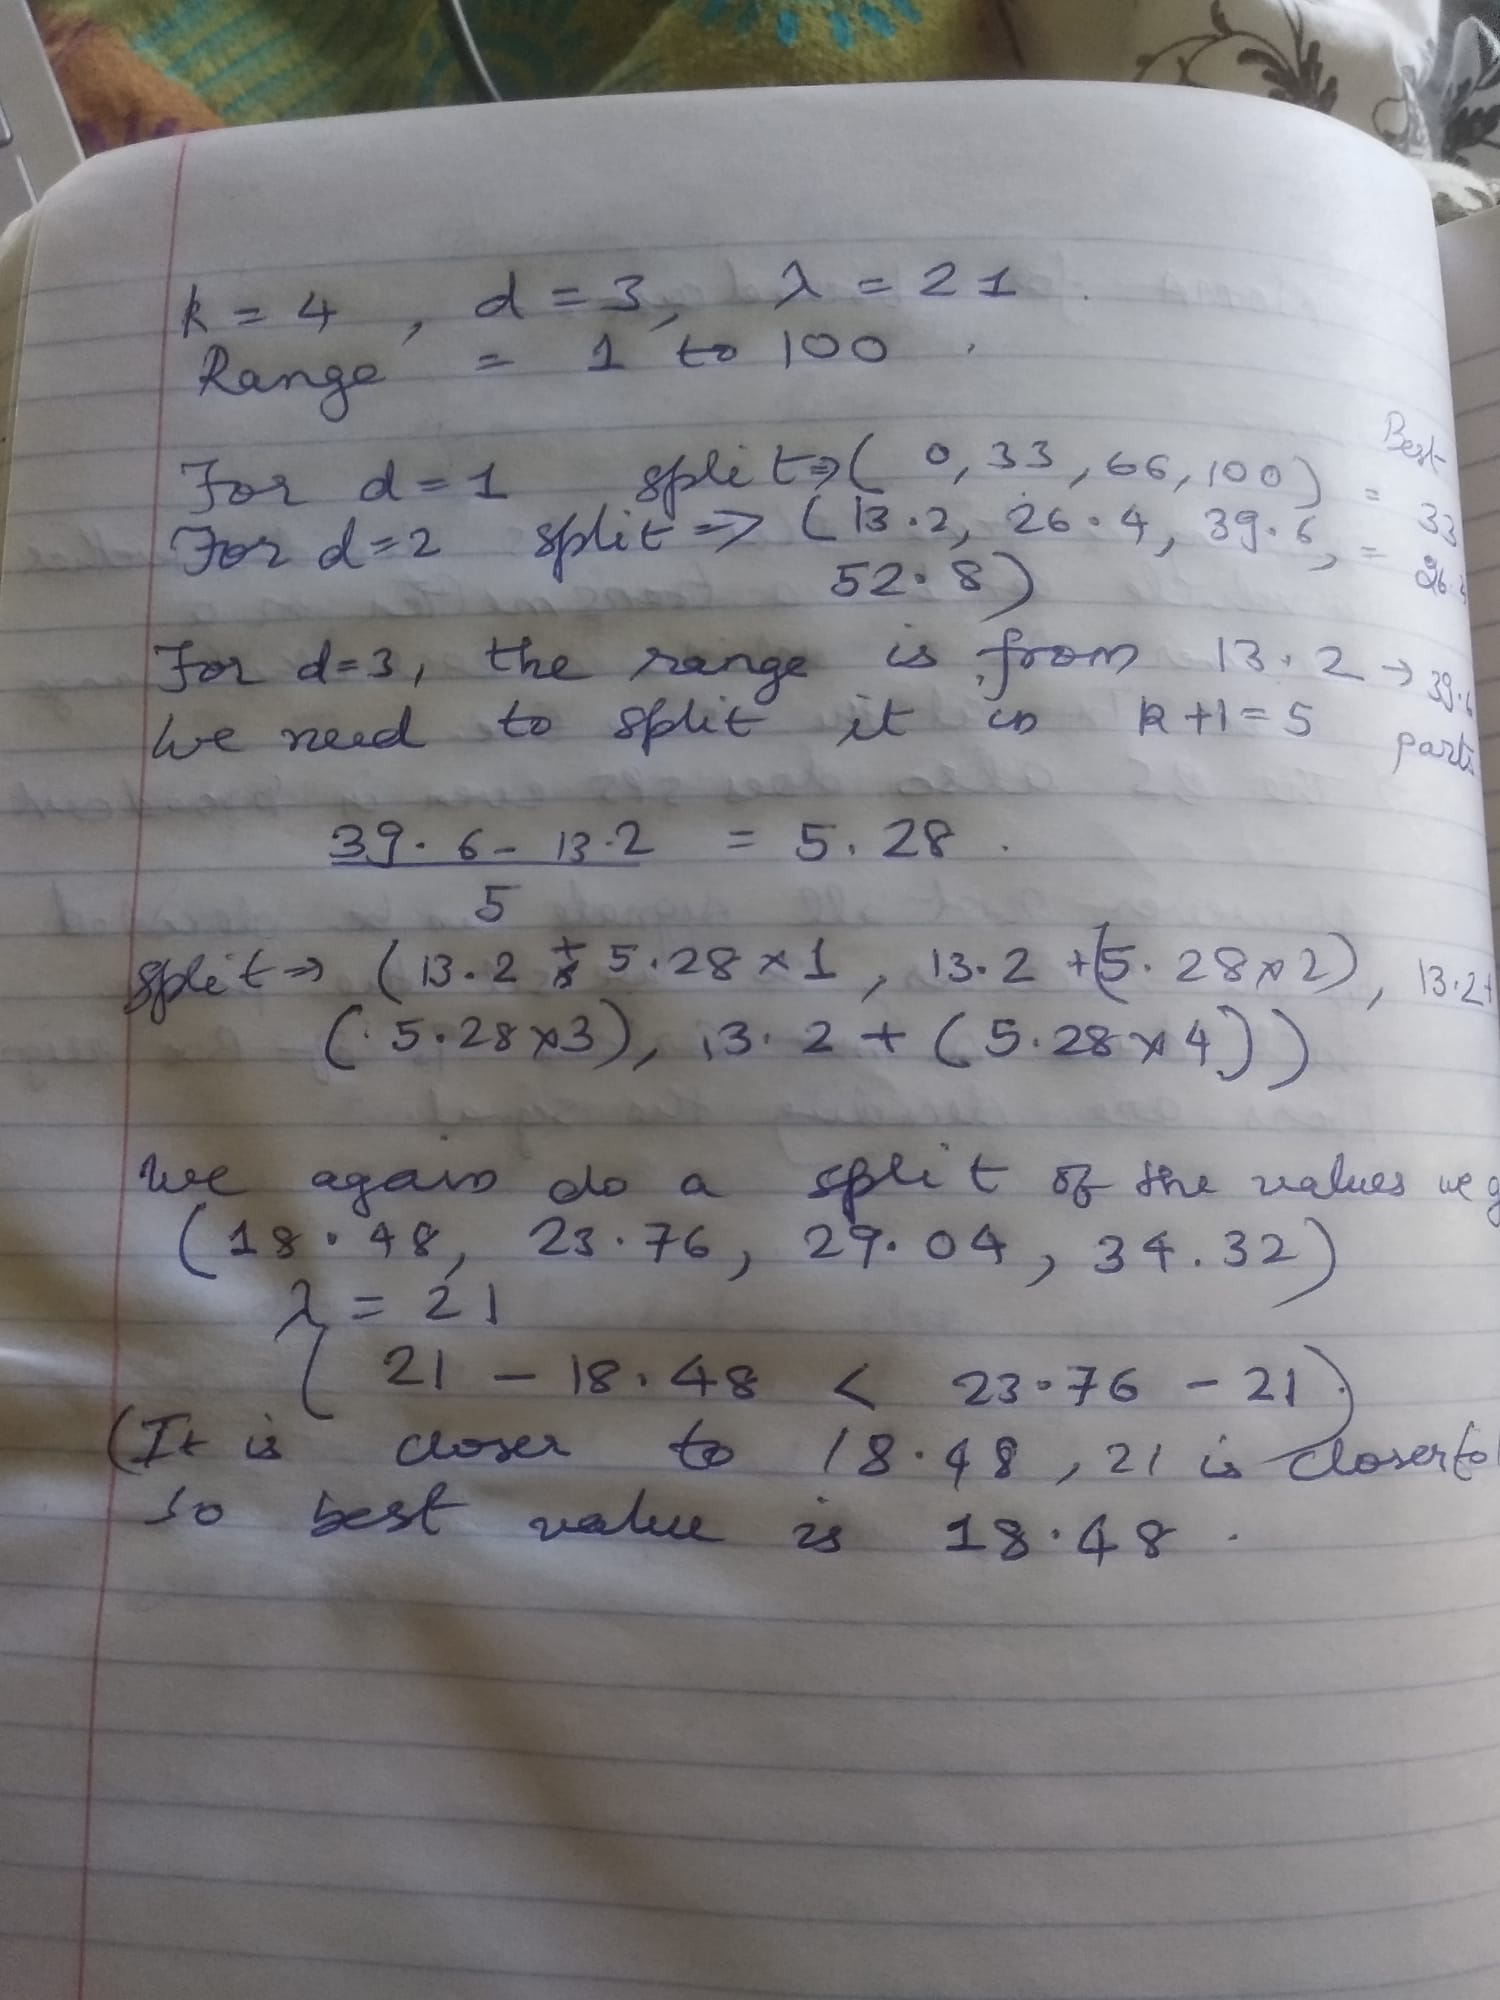 k = 4 , d = 3, λ = 21 .
Range = 1 to 100 .
Best
For d=1 split⇒( 0, 33 , 66, 100) = 33
For d=2 split ⇒ (13.2, 26.4, 39.6, = 26.4
52.8)
For d=3, the range is from 13.2 → 39.6
We need to split it in k+1=5 parts
39.6 - 13.2 = 5.28 .
5
split⇒ (13.2 + 5.28×1 , 13.2 +(5.28×2), 13.2+
(5.28×3), 13.2 + (5.28×4))
We again do a split of the values we
(18.48, 23.76, 29.04, 34.32)
λ = 21
( 21 - 18.48 < 23.76 - 21)
(It is closer to 18.48, 21 is closer to
So best value is 18.48 .